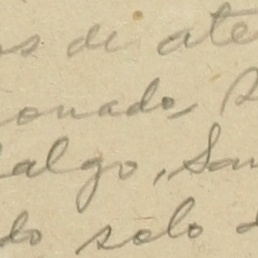 os de ate
onado, S
algo, San
do solo d